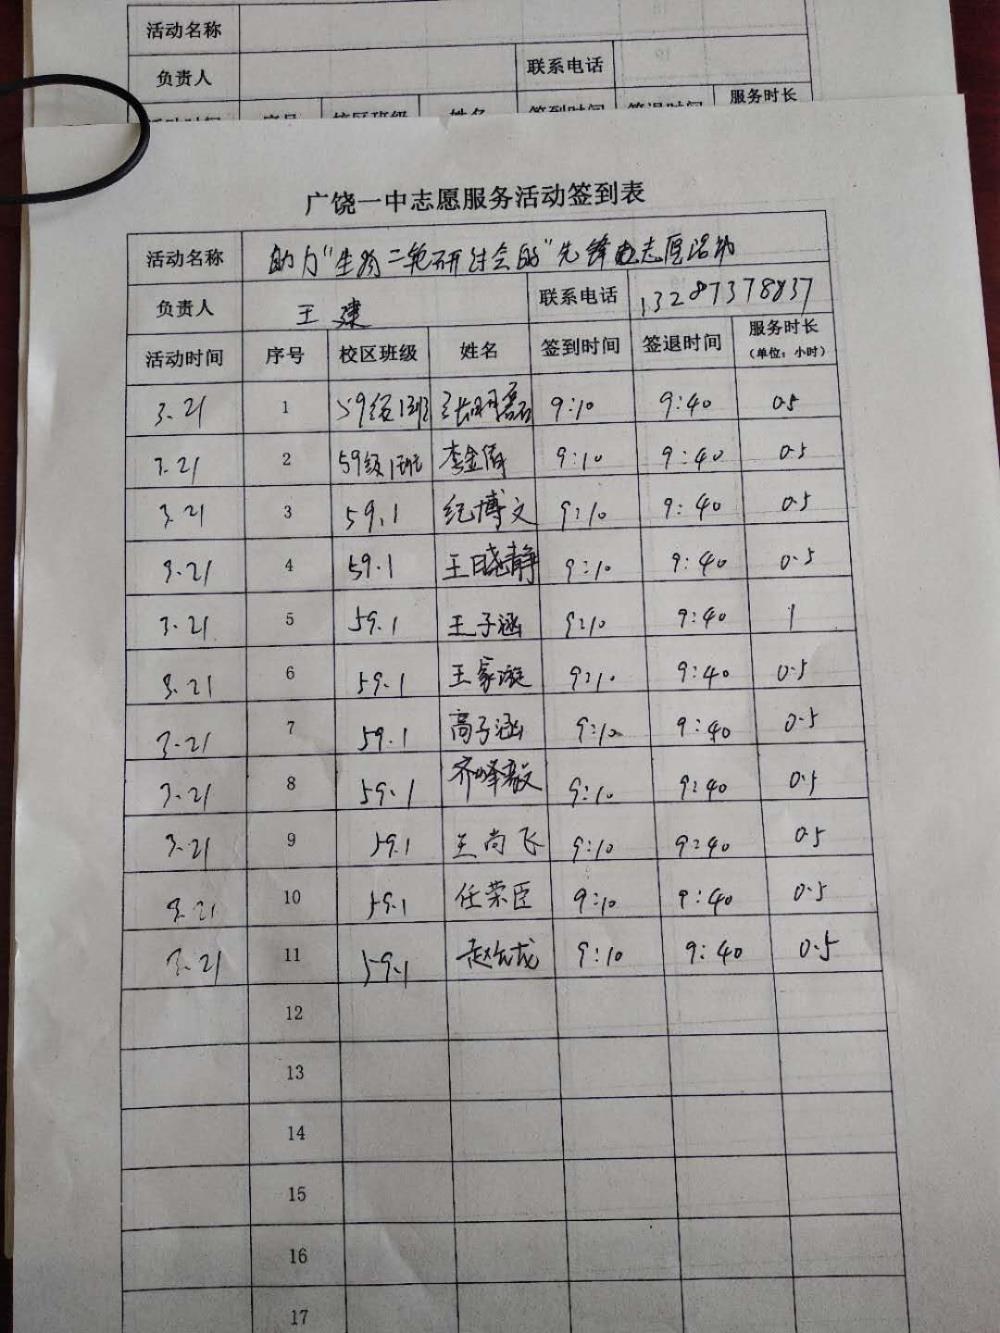 活动名称
负责人 联系电话
活动时间 序号 校区班级 姓名 签到时间 签退时间 服务时长
广饶一中志愿服务活动签到表
活动名称 助力"生物二轮研讨会的"先锋 志愿活动
负责人 王建 联系电话 13287378837
活动时间 序号 校区班级 姓名 签到时间 签退时间 服务时长
(单位：小时)
3.21 1 59级1班 张明磊 9:10 9:40 0.5
3.21 2 59级1班 李金倩 9:10 9:40 0.5
3.21 3 59.1 纪博文 9:10 9:40 0.5
3.21 4 59.1 王晓静 9:10 9:40 0.5
3.21 5 59.1 王子涵 9:10 9:40 1
3.21 6 59.1 王家璇 9:10 9:40 0.5
3.21 7 59.1 高子涵 9:10 9:40 0.5
3.21 8 59.1 齐峰毅 9:10 9:40 0.5
3.21 9 59.1 王尚飞 9:10 9:40 0.5
3.21 10 59.1 任荣臣 9:10 9:40 0.5
3.21 11 59.1 赵 龙 9:10 9:40 0.5
12
13
14
15
16
17